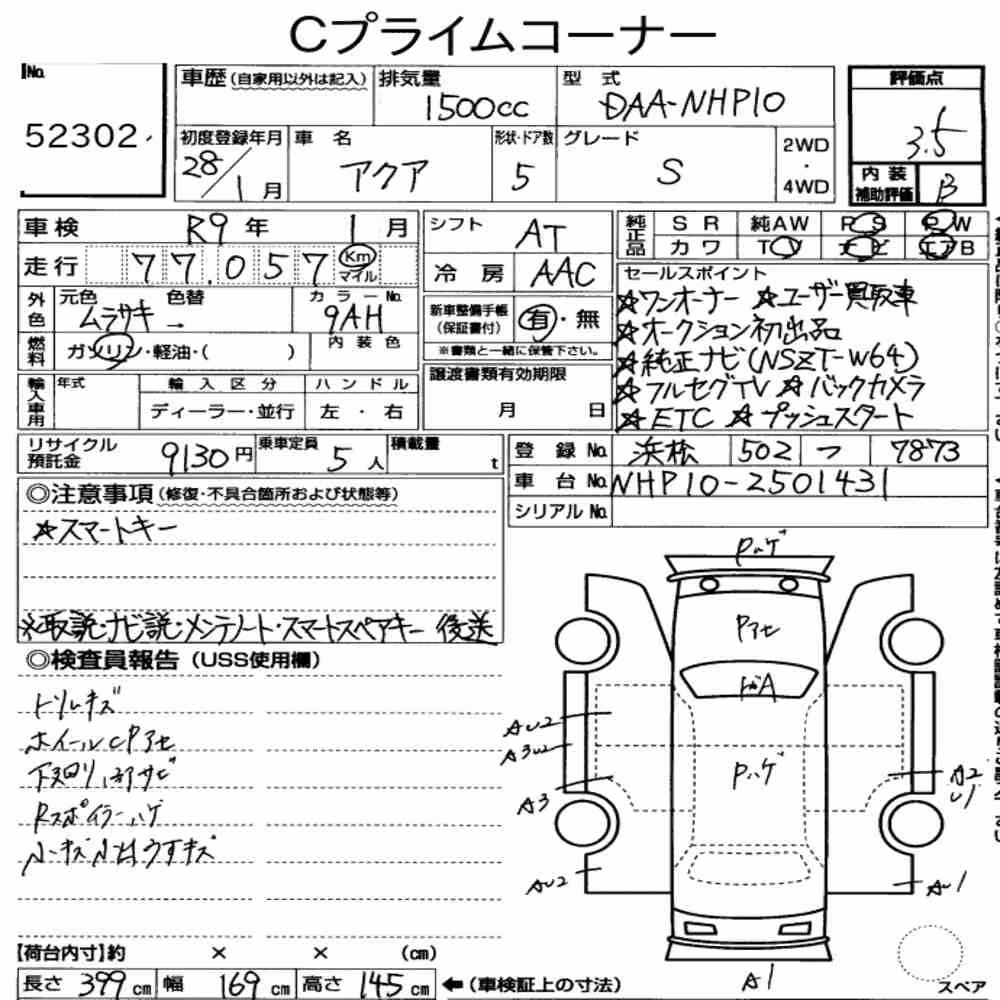 Cプライムコーナー
No. 52302
車歴(自家用以外は記入) 排気量 1500cc 型式 DAA-NHP10 評価点 3.5
初度登録年月 28/1月 車名 アクア 形状・ドア数 5 グレード S 2WD・4WD 内装補助評価 B
車検 R9年 1月 シフト AT 純正品 SR 純AW PS PW
走行 77,057 Km マイル 冷房 AAC カワ TV ナビ エアB
外色 元色 ムラサキ 色替 カラーNo. 9AH 新車整備手帳(保証書付) 有・無
燃料 ガソリン・軽油・( ) 内装色 ※書類と一緒に保管下さい。
輸入車用 年式 輸入区分 ディーラー・並行 ハンドル 左・右 譲渡書類有効期限 月 日
セールスポイント
☆ワンオーナー ☆ユーザー買取車
☆オークション初出品
☆純正ナビ(NSZT-W64)
☆フルセグTV ☆バックカメラ
☆ETC ☆プッシュスタート
リサイクル預託金 9130円 乗車定員 5人 積載量 t
登録No. 浜松 502 つ 7873
車台No. NHP10-2501431
シリアルNo.
◎注意事項(修復・不具合箇所および状態等)
☆スマートキー
※取説・ナビ説・メンテノート・スマートスペアキー 後送
◎検査員報告(USS使用欄)
トリムキズ
ホイールCPアセ
下廻り部サビ
Rスポイラーハゲ
小キズ小凹うすキズ
Pハゲ
Pアセ
A
Pハゲ
AU2
A3U2
A3
AU2
A2
U1
AU1
A1
スペア
【荷台内寸】約 × × (cm)
長さ 399cm 幅 169cm 高さ 145cm ←(車検証上の寸法)